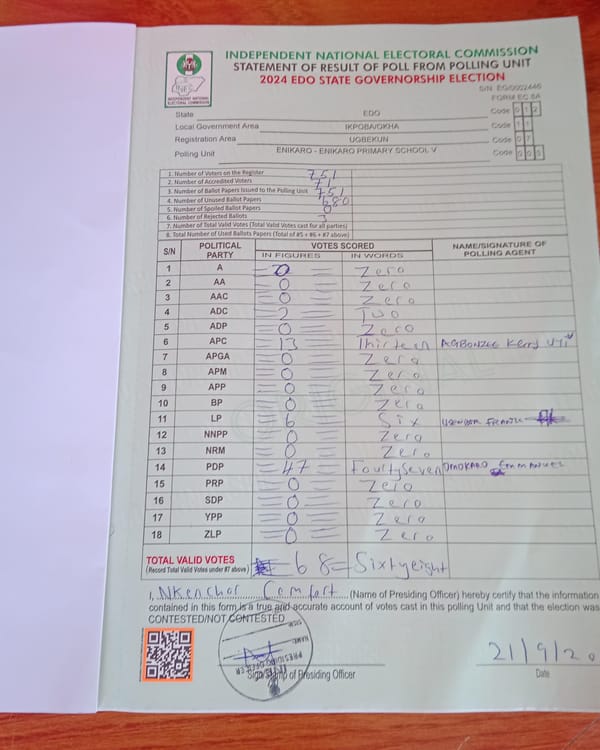 INDEPENDENT NATIONAL ELECTORAL COMMISSION
STATEMENT OF RESULT OF POLL FROM POLLING UNIT
2024 EDO STATE GOVERNORSHIP ELECTION
INEC
INDEPENDENT NATIONAL ELECTORAL COMMISSION
S/N EG/0002446
FORM EC 8A
State EDO Code 0 1 2
Local Government Area IKPOBA/OKHA Code 1 1
Registration Area UGBEKUN Code 0 7
Polling Unit ENIKARO - ENIKARO PRIMARY SCHOOL V Code 0 0 5
1. Number of Voters on the Register 751
2. Number of Accredited Voters 71
3. Number of Ballot Papers Issued to the Polling Unit 751
4. Number of Unused Ballot Papers 680
5. Number of Spoiled Ballot Papers 0
6. Number of Rejected Ballots 3
7. Number of Total Valid Votes (Total Valid Votes cast for all parties)
8. Total Number of Used Ballots Papers (Total of #5 + #6 + #7 above)
S/N POLITICAL PARTY VOTES SCORED NAME/SIGNATURE OF POLLING AGENT
IN FIGURES IN WORDS
1 A 0 Zero
2 AA 0 Zero
3 AAC 0 Zero
4 ADC 2 Two
5 ADP 0 Zero
6 APC 13 Thirteen AGBONZEE Kerry UTI
7 APGA 0 Zero
8 APM 0 Zero
9 APP 0 Zero
10 BP 0 Zero
11 LP 6 Six
12 NNPP 0 Zero
13 NRM 0 Zero
14 PDP 47 FourtySeven OMOKARO Emmanuel
15 PRP 0 Zero
16 SDP 0 Zero
17 YPP 0 Zero
18 ZLP 0 Zero
TOTAL VALID VOTES 68 = Sixtyeight
(Record Total Valid Votes under #7 above)
I, Nkenchor Comfort (Name of Presiding Officer) hereby certify that the information
contained in this form is a true and accurate account of votes cast in this polling Unit and that the election was
CONTESTED/NOT CONTESTED
SIGN
NAME
PRESIDING OFFICER
21/9/20
Sign/Stamp of Presiding Officer Date